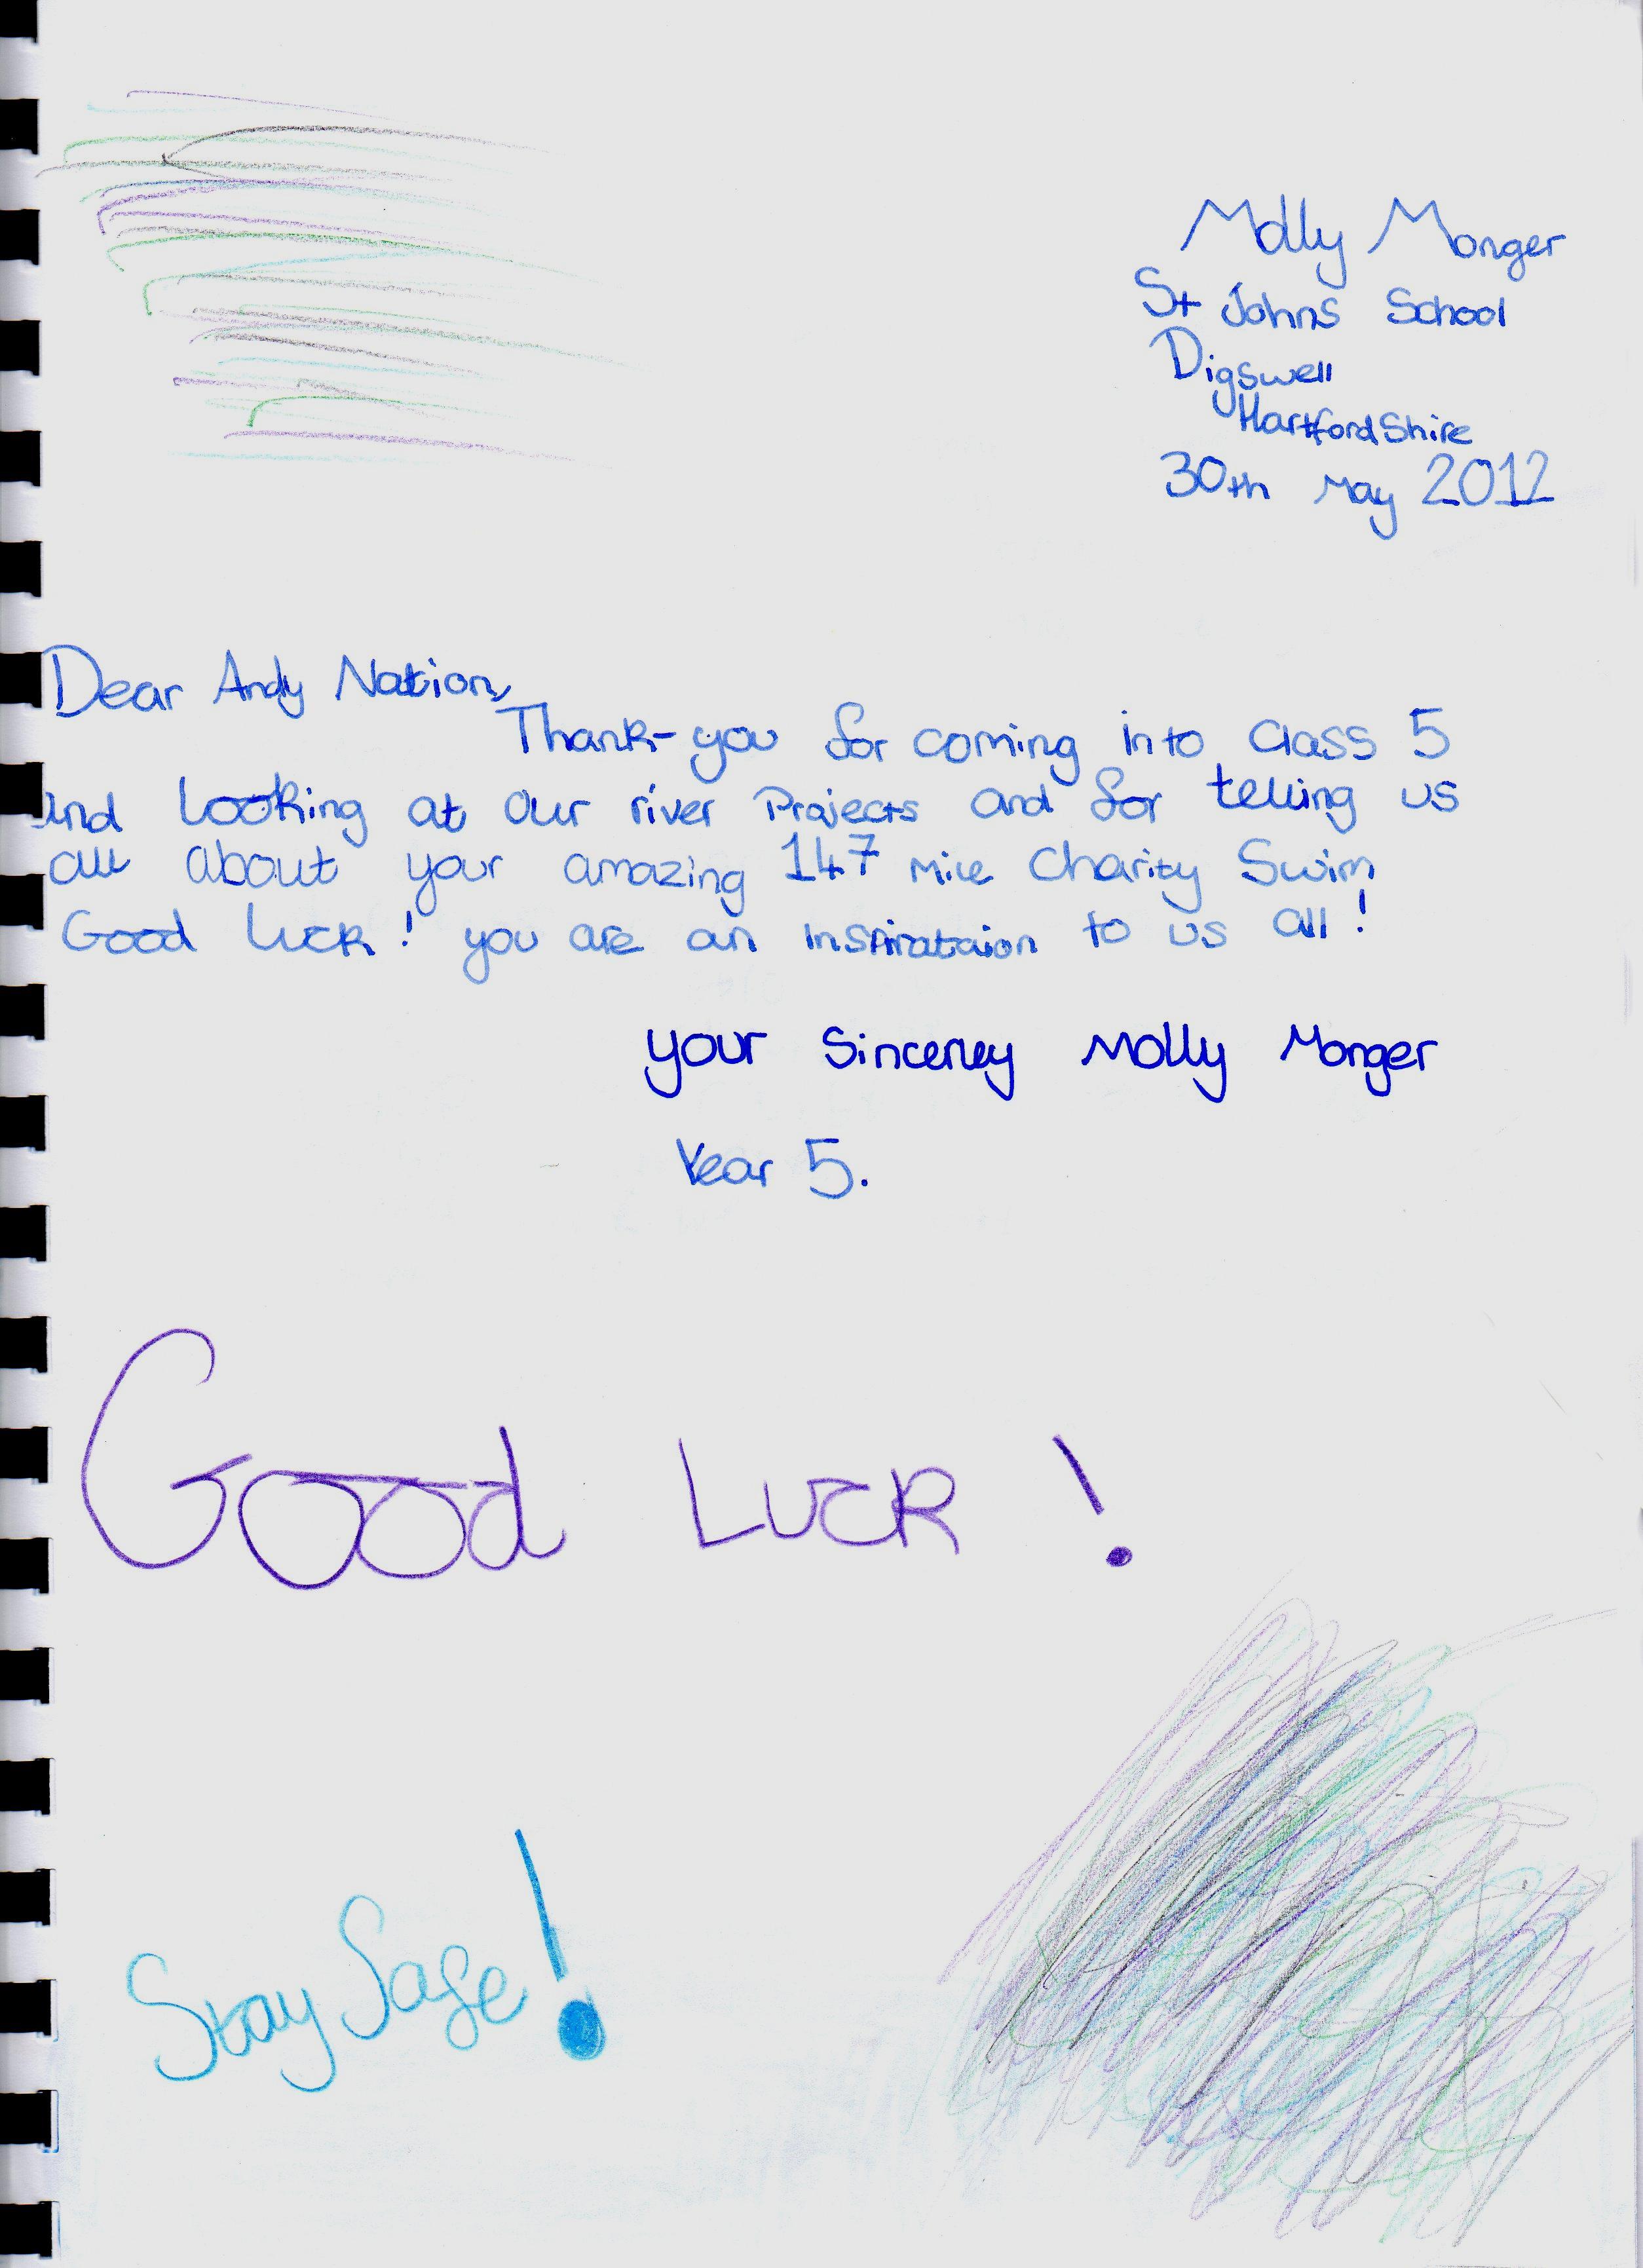 Molly Monger
St Johns School
Digswell
HartfordShire
30th May 2012
Dear Andy Nation,
Thank-you for coming into Class 5
and looking at our river Projects and for telling us
all about your amazing 147 mile Charity Swim
Good Luck! you are an inspirataion to us all!
your Sincerley Molly Monger
Year 5.
Good Luck!
Stay Safe!